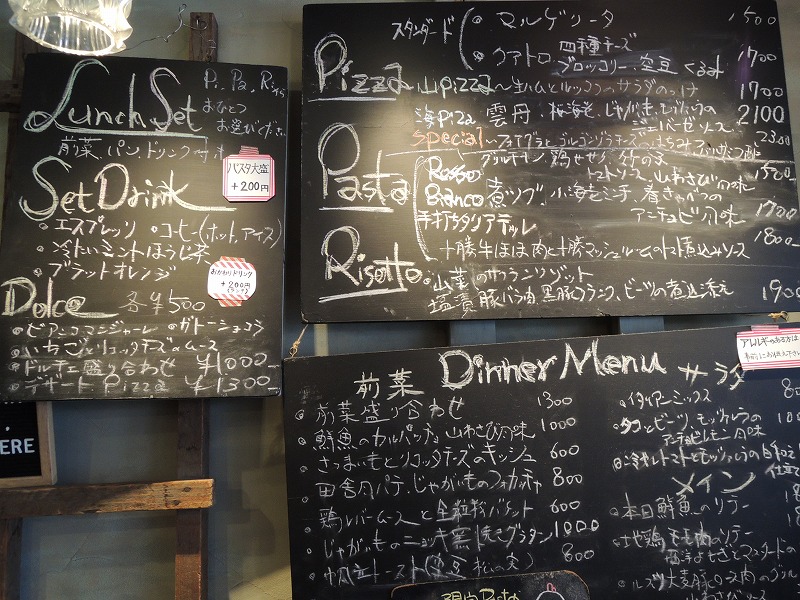 Lunch Set
Pi. Pa. Ri から
おひとつ
お選びください
前菜、パン、ドリンク付き
パスタ大盛
+200円
Set Drink
・エスプレッソ ・コーヒー(ホット、アイス)
・冷たいミントほうじ茶
・ブラッドオレンジ
おかわりドリンク
+200円
(ランチ)
Dolce 各¥500
・ビアンコマンジャーレ ・ガトーショコラ
・いちごとリコッタチーズのムース
・ドルチェ盛り合わせ ¥1000
・デザートPizza ¥1300
ERE
Pizza
スタンダード
・マルゲリータ 1500
・クアトロ 四種チーズ 1700
ブロッコリー、空豆 くるみ
山pizza 〜生ハムとルッコラのサラダのっけ 1700
海pizza 雲丹、桜海老、じゃがいも 2100
ジェノベーゼソース
special 〜フォアグラとゴルゴンゾーラチーズのはちみつ 2300
Pasta
Rosso 鶏せせり、竹の子 1500
トマトソース、山わさび風味
Bianco 煮ツブ、小海老 春きゃべつの
アンチョビ風味 1700
手打ちタリアテッレ 1800
十勝牛ほほ肉と十勝マッシュルームのトマト煮込みソース
Risotto
・山菜のサフランリゾット
塩漬豚バラ肉、黒豚フランク、ビーツの煮込添え 1900
アレルギーのある方は
Dinner Menu
前菜
・前菜盛り合わせ 1300
・鮮魚のカルパッチョ 山わさび風味 1000
・さつまいもとリコッタチーズのキッシュ 600
・田舎風パテ、じゃがいものフォカッチャ 800
・鶏レバームースと全粒粉バケット 600
・じゃがいものニョッキ窯焼きグラタン 1000
・帆立トースト(空豆 松の実) 800
サラダ
・イタリアンミックス
・タコとビーツ、モッツァレラの
アンチョビレモン風味
・冷やしトマトとモッツァレラの
メイン
・本日鮮魚のソテー
・地鶏もも肉のソテー
マスタードの
山わさびソース